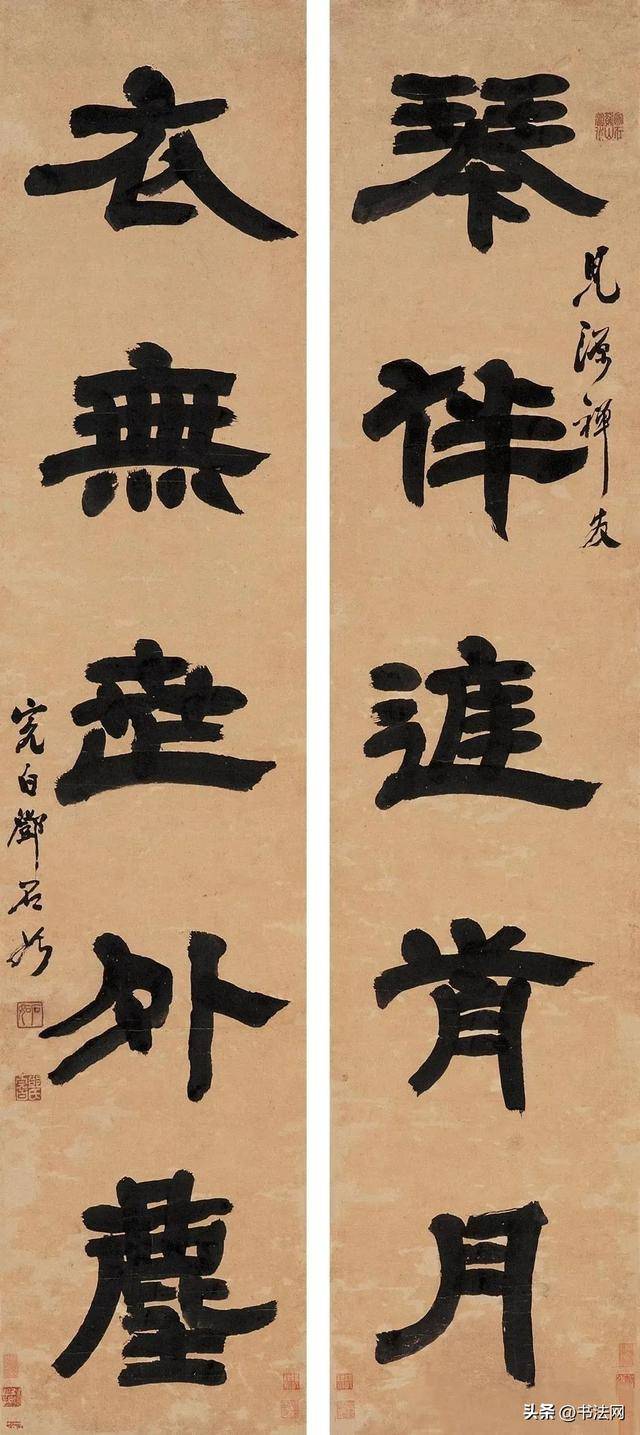 琴伴進月
見源禪友
衣無世外塵
完白鄧石如
头条 @书法网